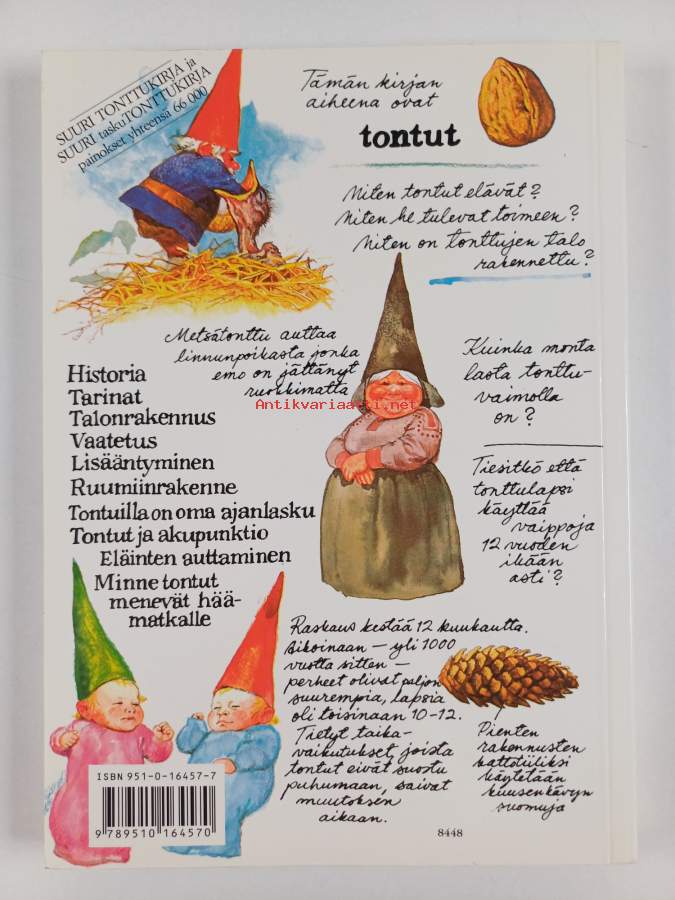 SUURI TONTTUKIRJA ja
SUURI taskuTONTTUKIRJA
painokset yhteensä 66 000
Tämän kirjan
aiheena ovat
tontut
Miten tontut elävät?
Miten he tulevat toimeen?
Miten on tonttujen talo
rakennettu?
Metsätonttu auttaa
linnunpoikasta jonka
emo on jättänyt
ruokkimatta
Antikvariaatti.net
Kuinka monta
lasta tonttu-
vaimolla
on?
Historia
Tarinat
Talonrakennus
Vaatetus
Lisääntyminen
Ruumiinrakenne
Tontuilla on oma ajanlasku
Tontut ja akupunktio
Eläinten auttaminen
Minne tontut
menevät hää-
matkalle
Tiesitkö että
tonttulapsi
käyttää
vaippoja
12 vuoden
ikään
asti?
Raskaus kestää 12 kuukautta.
Aikoinaan – yli 1000
vuotta sitten –
perheet olivat paljon
suurempia, lapsia
oli toisinaan 10-12.
Tietyt taika-
vaikutukset, joista
tontut eivät suostu
puhumaan, saivat
muutoksen
aikaan.
Pienten
rakennusten
kattotiiliksi
käytetään
kuusenkävyn
suomuja
ISBN 951-0-16457-7
9 789510 164570
8448